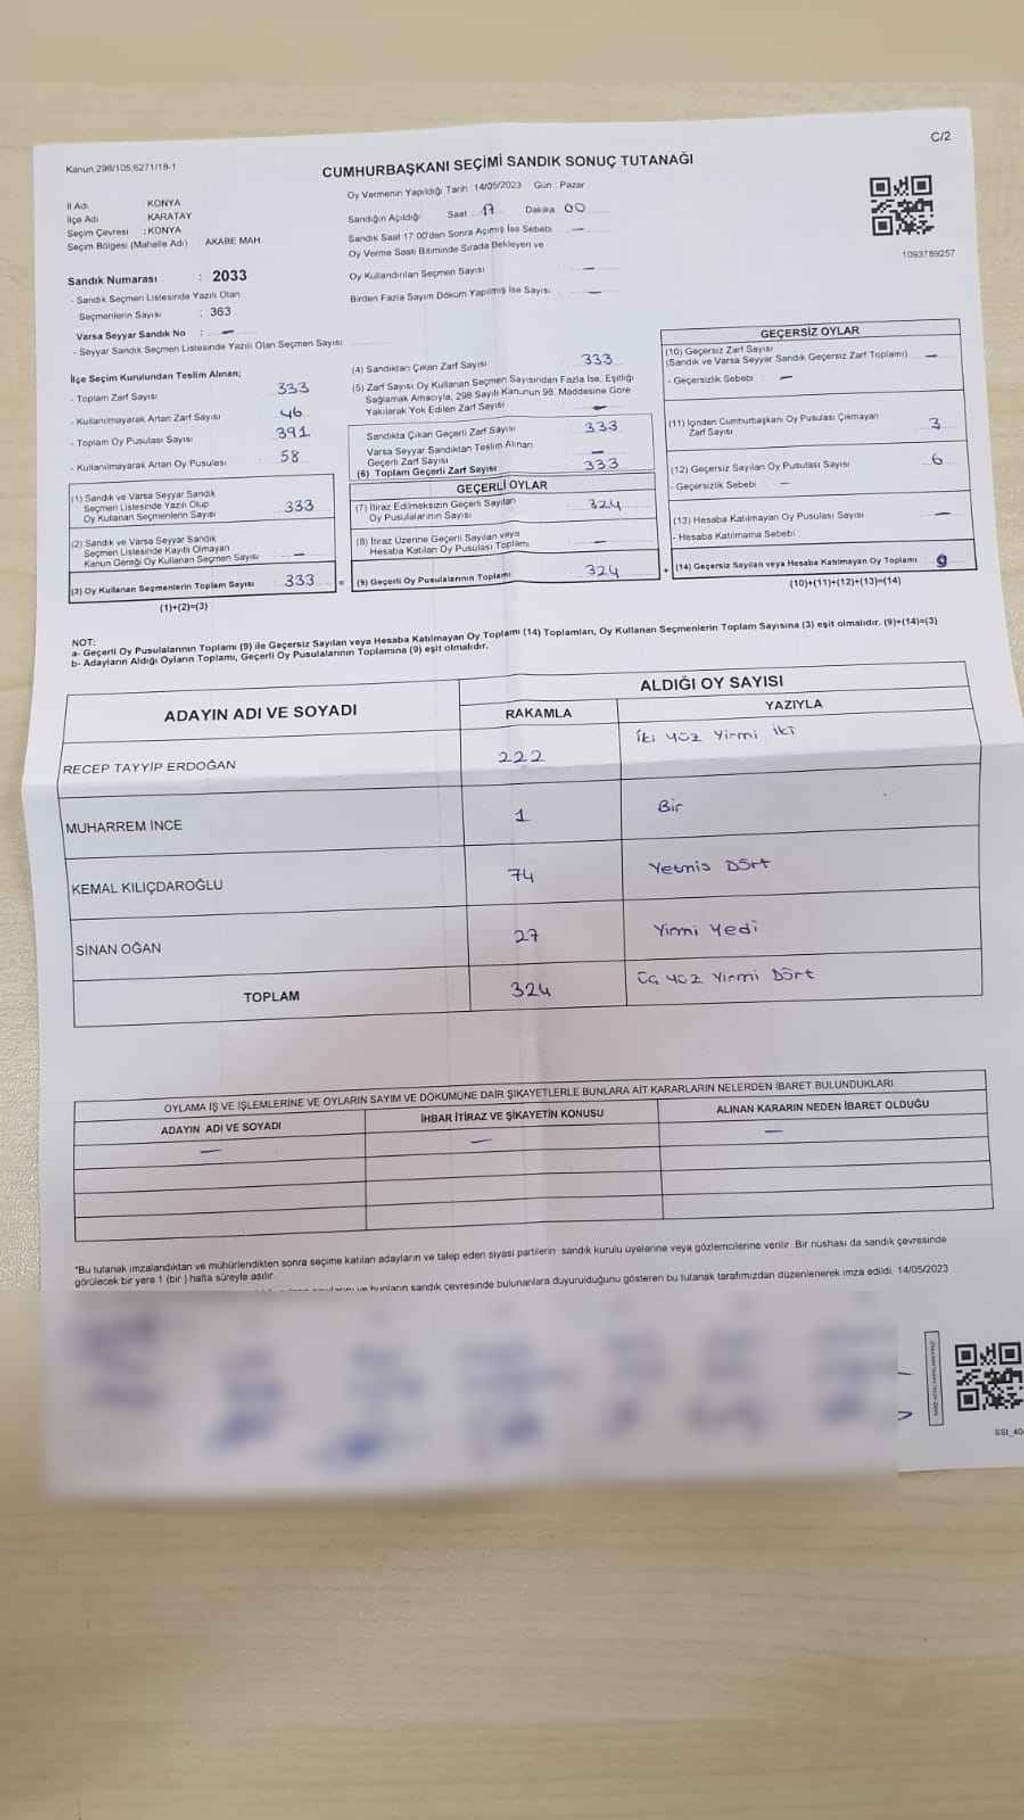 C/2
Kanun:298/105;6271/18-1
CUMHURBAŞKANI SEÇİMİ SANDIK SONUÇ TUTANAĞI
Oy Vermenin Yapıldığı Tarih :14/05/2023 Gün : Pazar
İl Adı : KONYA
İlçe Adı KARATAY
Seçim Çevresi : KONYA
Seçim Bölgesi (Mahalle Adı) AKABE MAH.
Sandığın Açıldığı Saat 17 Dakika 00
Sandık Saat 17:00'den Sonra Açımış İse Sebebi —
Oy Verme Saati Bitiminde Sırada Bekleyen ve
Oy Kullandırılan Seçmen Sayısı —
Birden Fazla Sayım Döküm Yapılmış İse Sayısı —
1093789257
Sandık Numarası : 2033
- Sandık Seçmen Listesinde Yazılı Olan
Seçmenlerin Sayısı : 363
Varsa Seyyar Sandık No : —
- Seyyar Sandık Seçmen Listesinde Yazılı Olan Seçmen Sayısı
İlçe Seçim Kurulundan Teslim Alınan;
- Toplam Zarf Sayısı 333
- Kullanılmayarak Artan Zarf Sayısı 46
- Toplam Oy Pusulası Sayısı 391
- Kullanılmayarak Artan Oy Pusulası 58
(1) Sandık ve Varsa Seyyar Sandık
Seçmen Listesinde Yazılı Olup
Oy Kullanan Seçmenlerin Sayısı 333
(2) Sandık ve Varsa Seyyar Sandık
Seçmen Listesinde Kayıtlı Olmayan
Kanun Gereği Oy Kullanan Seçmen Sayısı —
(3) Oy Kullanan Seçmenlerin Toplam Sayısı 333 =
(1)+(2)=(3)
(4) Sandıktan Çıkan Zarf Sayısı 333
(5) Zarf Sayısı Oy Kullanan Seçmen Sayısından Fazla İse, Eşitliği
Sağlamak Amacıyla, 298 Sayılı Kanunun 98. Maddesine Göre
Yakılarak Yok Edilen Zarf Sayısı —
Sandıkta Çıkan Geçerli Zarf Sayısı 333
Varsa Seyyar Sandıktan Teslim Alınan
Geçerli Zarf Sayısı —
(6) Toplam Geçerli Zarf Sayısı 333
GEÇERLİ OYLAR
(7) İtiraz Edilmeksizin Geçerli Sayılan
Oy Pusulalarının Sayısı 324
(8) İtiraz Üzerine Geçerli Sayılan veya
Hesaba Katılan Oy Pusulası Toplamı —
(9) Geçerli Oy Pusulalarının Toplamı 324 +
GEÇERSİZ OYLAR
(10) Geçersiz Zarf Sayısı
(Sandık ve Varsa Seyyar Sandık Geçersiz Zarf Toplamı) —
- Geçersizlik Sebebi : —
(11) İçinden Cumhurbaşkanı Oy Pusulası Çıkmayan
Zarf Sayısı 3
(12) Geçersiz Sayılan Oy Pusulası Sayısı 6
- Geçersizlik Sebebi —
(13) Hesaba Katılmayan Oy Pusulası Sayısı —
- Hesaba Katılmama Sebebi :
(14) Geçersiz Sayılan veya Hesaba Katılmayan Oy Toplamı 9
(10)+(11)+(12)+(13)=(14)
NOT:
a- Geçerli Oy Pusulalarının Toplamı (9) ile Geçersiz Sayılan veya Hesaba Katılmayan Oy Toplamı (14) Toplamları, Oy Kullanan Seçmenlerin Toplam Sayısına (3) eşit olmalıdır. (9)+(14)=(3)
b- Adayların Aldığı Oyların Toplamı, Geçerli Oy Pusulalarının Toplamına (9) eşit olmalıdır.
ADAYIN ADI VE SOYADI
ALDIĞI OY SAYISI
RAKAMLA YAZIYLA
RECEP TAYYİP ERDOĞAN 222 İki yüz yirmi iki
MUHARREM İNCE 1 Bir
KEMAL KILIÇDAROĞLU 74 Yetmis Dört
SİNAN OĞAN 27 Yirmi Yedi
TOPLAM 324 Üç yüz Yirmi Dört
OYLAMA İŞ VE İŞLEMLERİNE VE OYLARIN SAYIM VE DÖKÜMÜNE DAİR ŞİKAYETLERLE BUNLARA AİT KARARLARIN NELERDEN İBARET BULUNDUKLARI
ADAYIN ADI VE SOYADI İHBAR İTİRAZ VE ŞİKAYETİN KONUSU ALINAN KARARIN NEDEN İBARET OLDUĞU
— — —
*Bu tutanak imzalandıktan ve mühürlendikten sonra seçime katılan adayların ve talep eden siyasi partilerin sandık kurulu üyelerine veya gözlemcilerine verilir. Bir nüshası da sandık çevresinde
görülecek bir yere 1 (bir ) hafta süreyle asılır.
ve bunların sandık çevresinde bulunanlara duyurulduğunu gösteren bu tutanak tarafımızdan düzenlenerek imza edildi. 14/05/2023
SSI_40